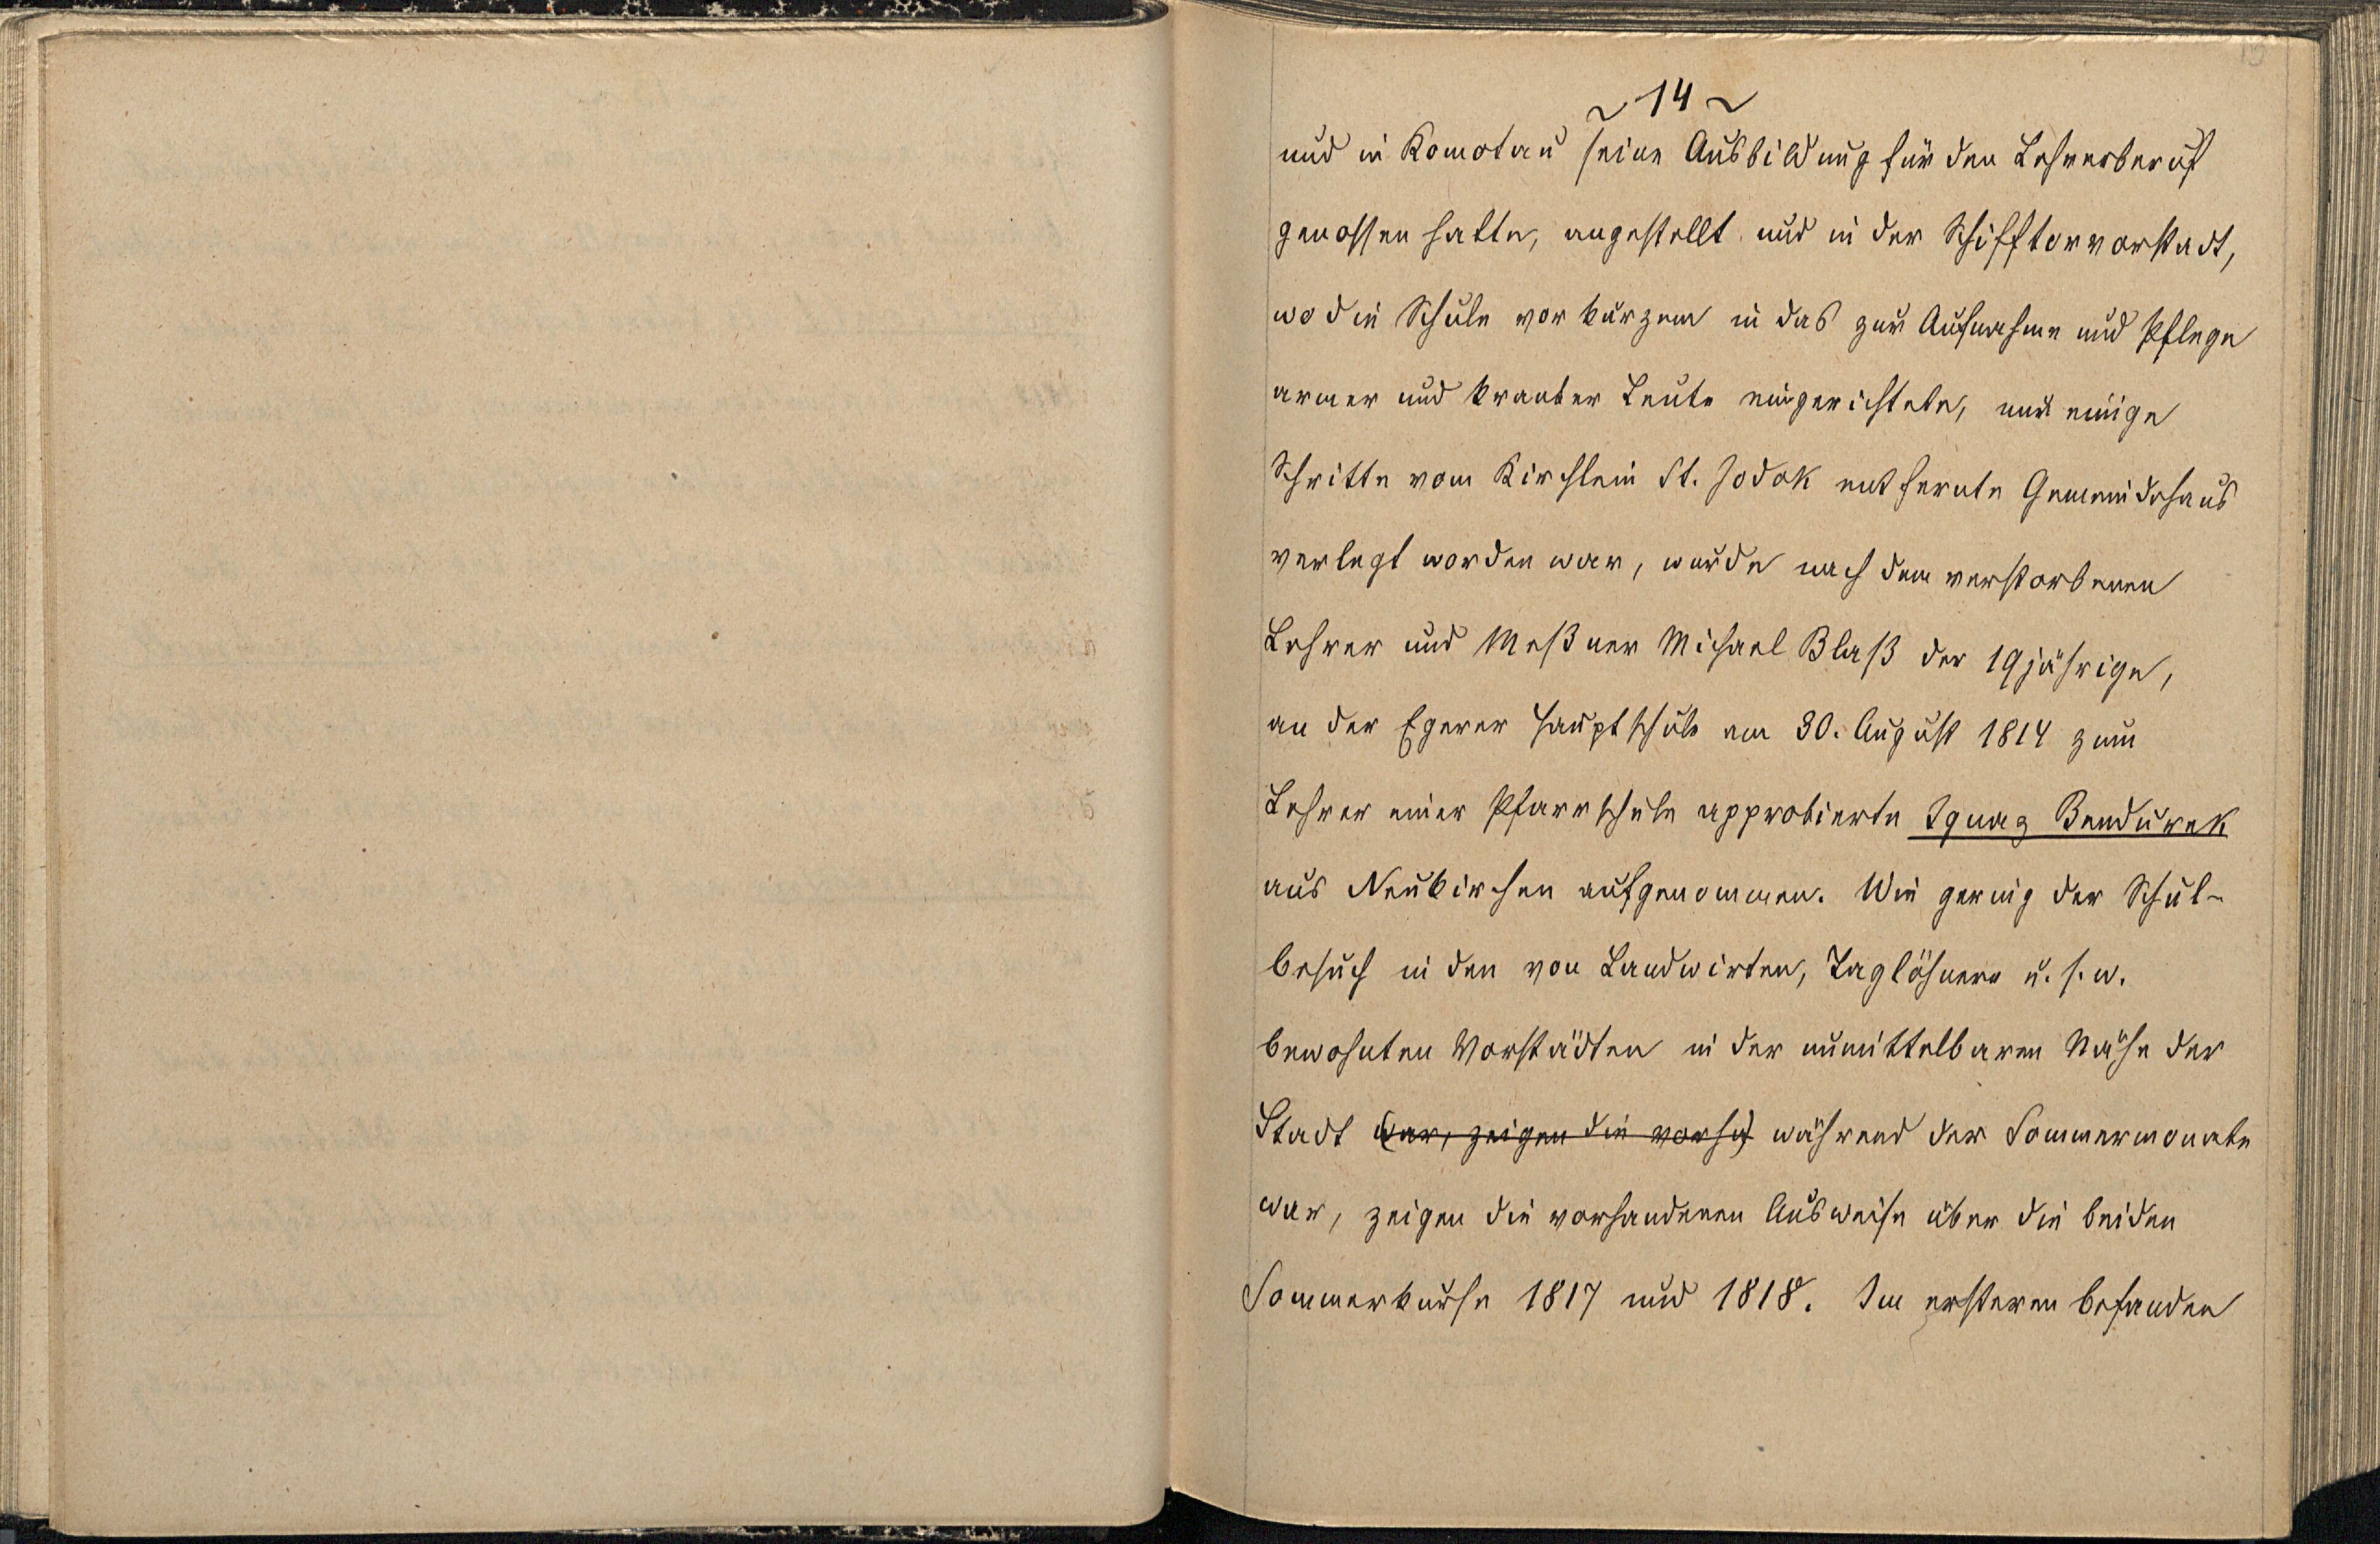 ~ 14 ~
und in Komotau seine Ausbildung für den Lehrerberuf
genossen hatte, angestellt und in der Schifftorvorstadt,
wo die Schule vor kurzem in das zur Aufnahme und Pflege
armer und kranker Leute eingerichtete, nur einige
Schritte vom Kirchlein St. Jodok entfernte Gemeindehaus
verlegt worden war, wurde nach dem verstorbenen
Lehrer und Meßner Michael Blaß der 19jährige,
an der Egerer Hauptschule am 30. August 1814 zum
Lehrer einer Pfarrschule approbierte Ignaz Bendurek
aus Neukirchen aufgenommen. Wie gering der Schul-
besuch in den von Landwirten, Taglöhnern u. s. w.
bewohnten Vorstädten in der unmittelbaren Nähe der
Stadt (war, zeigen die vorha) während der Sommermonate
war, zeigen die vorhandenen Ausweise über die beiden
Sommerkurse 1817 und 1818. Im ersteren befanden